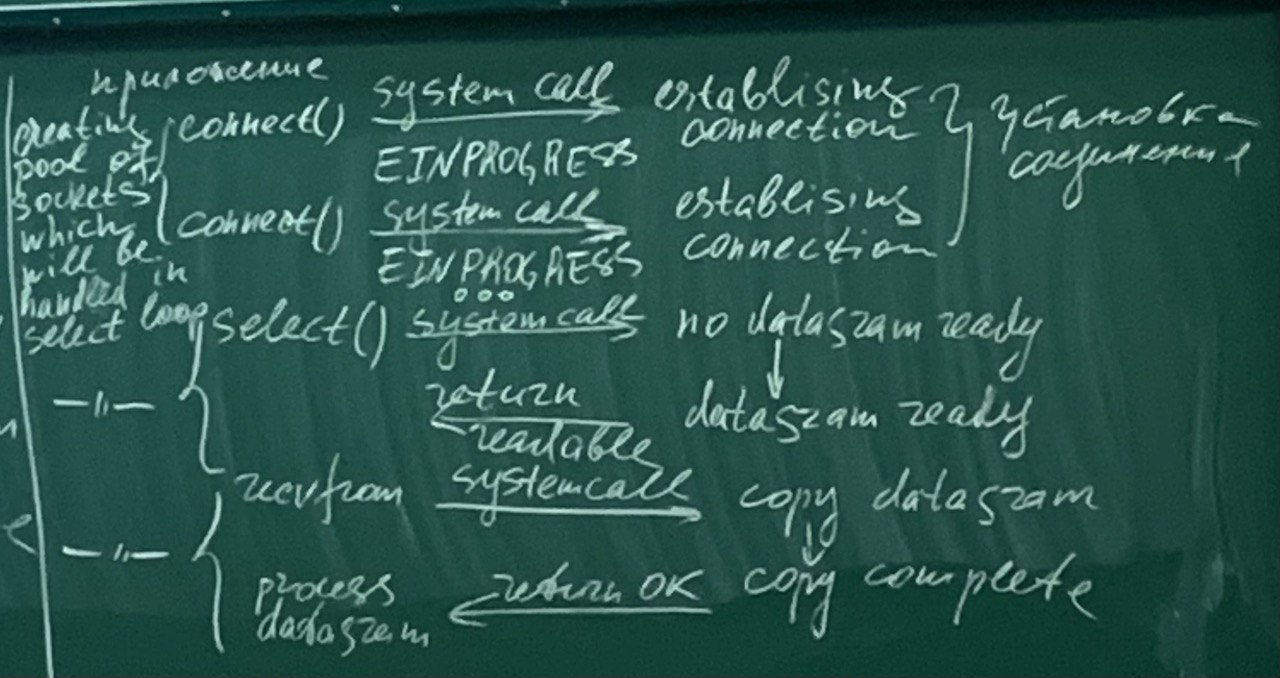 приложение
creating
pool of
sockets
which
will be
handled in
select loop
connect() system call establising
connection
EINPROGRESS
connect() system call establising
connection
EINPROGRESS
установка
соединения
select() system call no datagram ready
—||— return datagram ready
readable
recvfrom system call copy datagram
—||—
process return OK copy complete
datagram